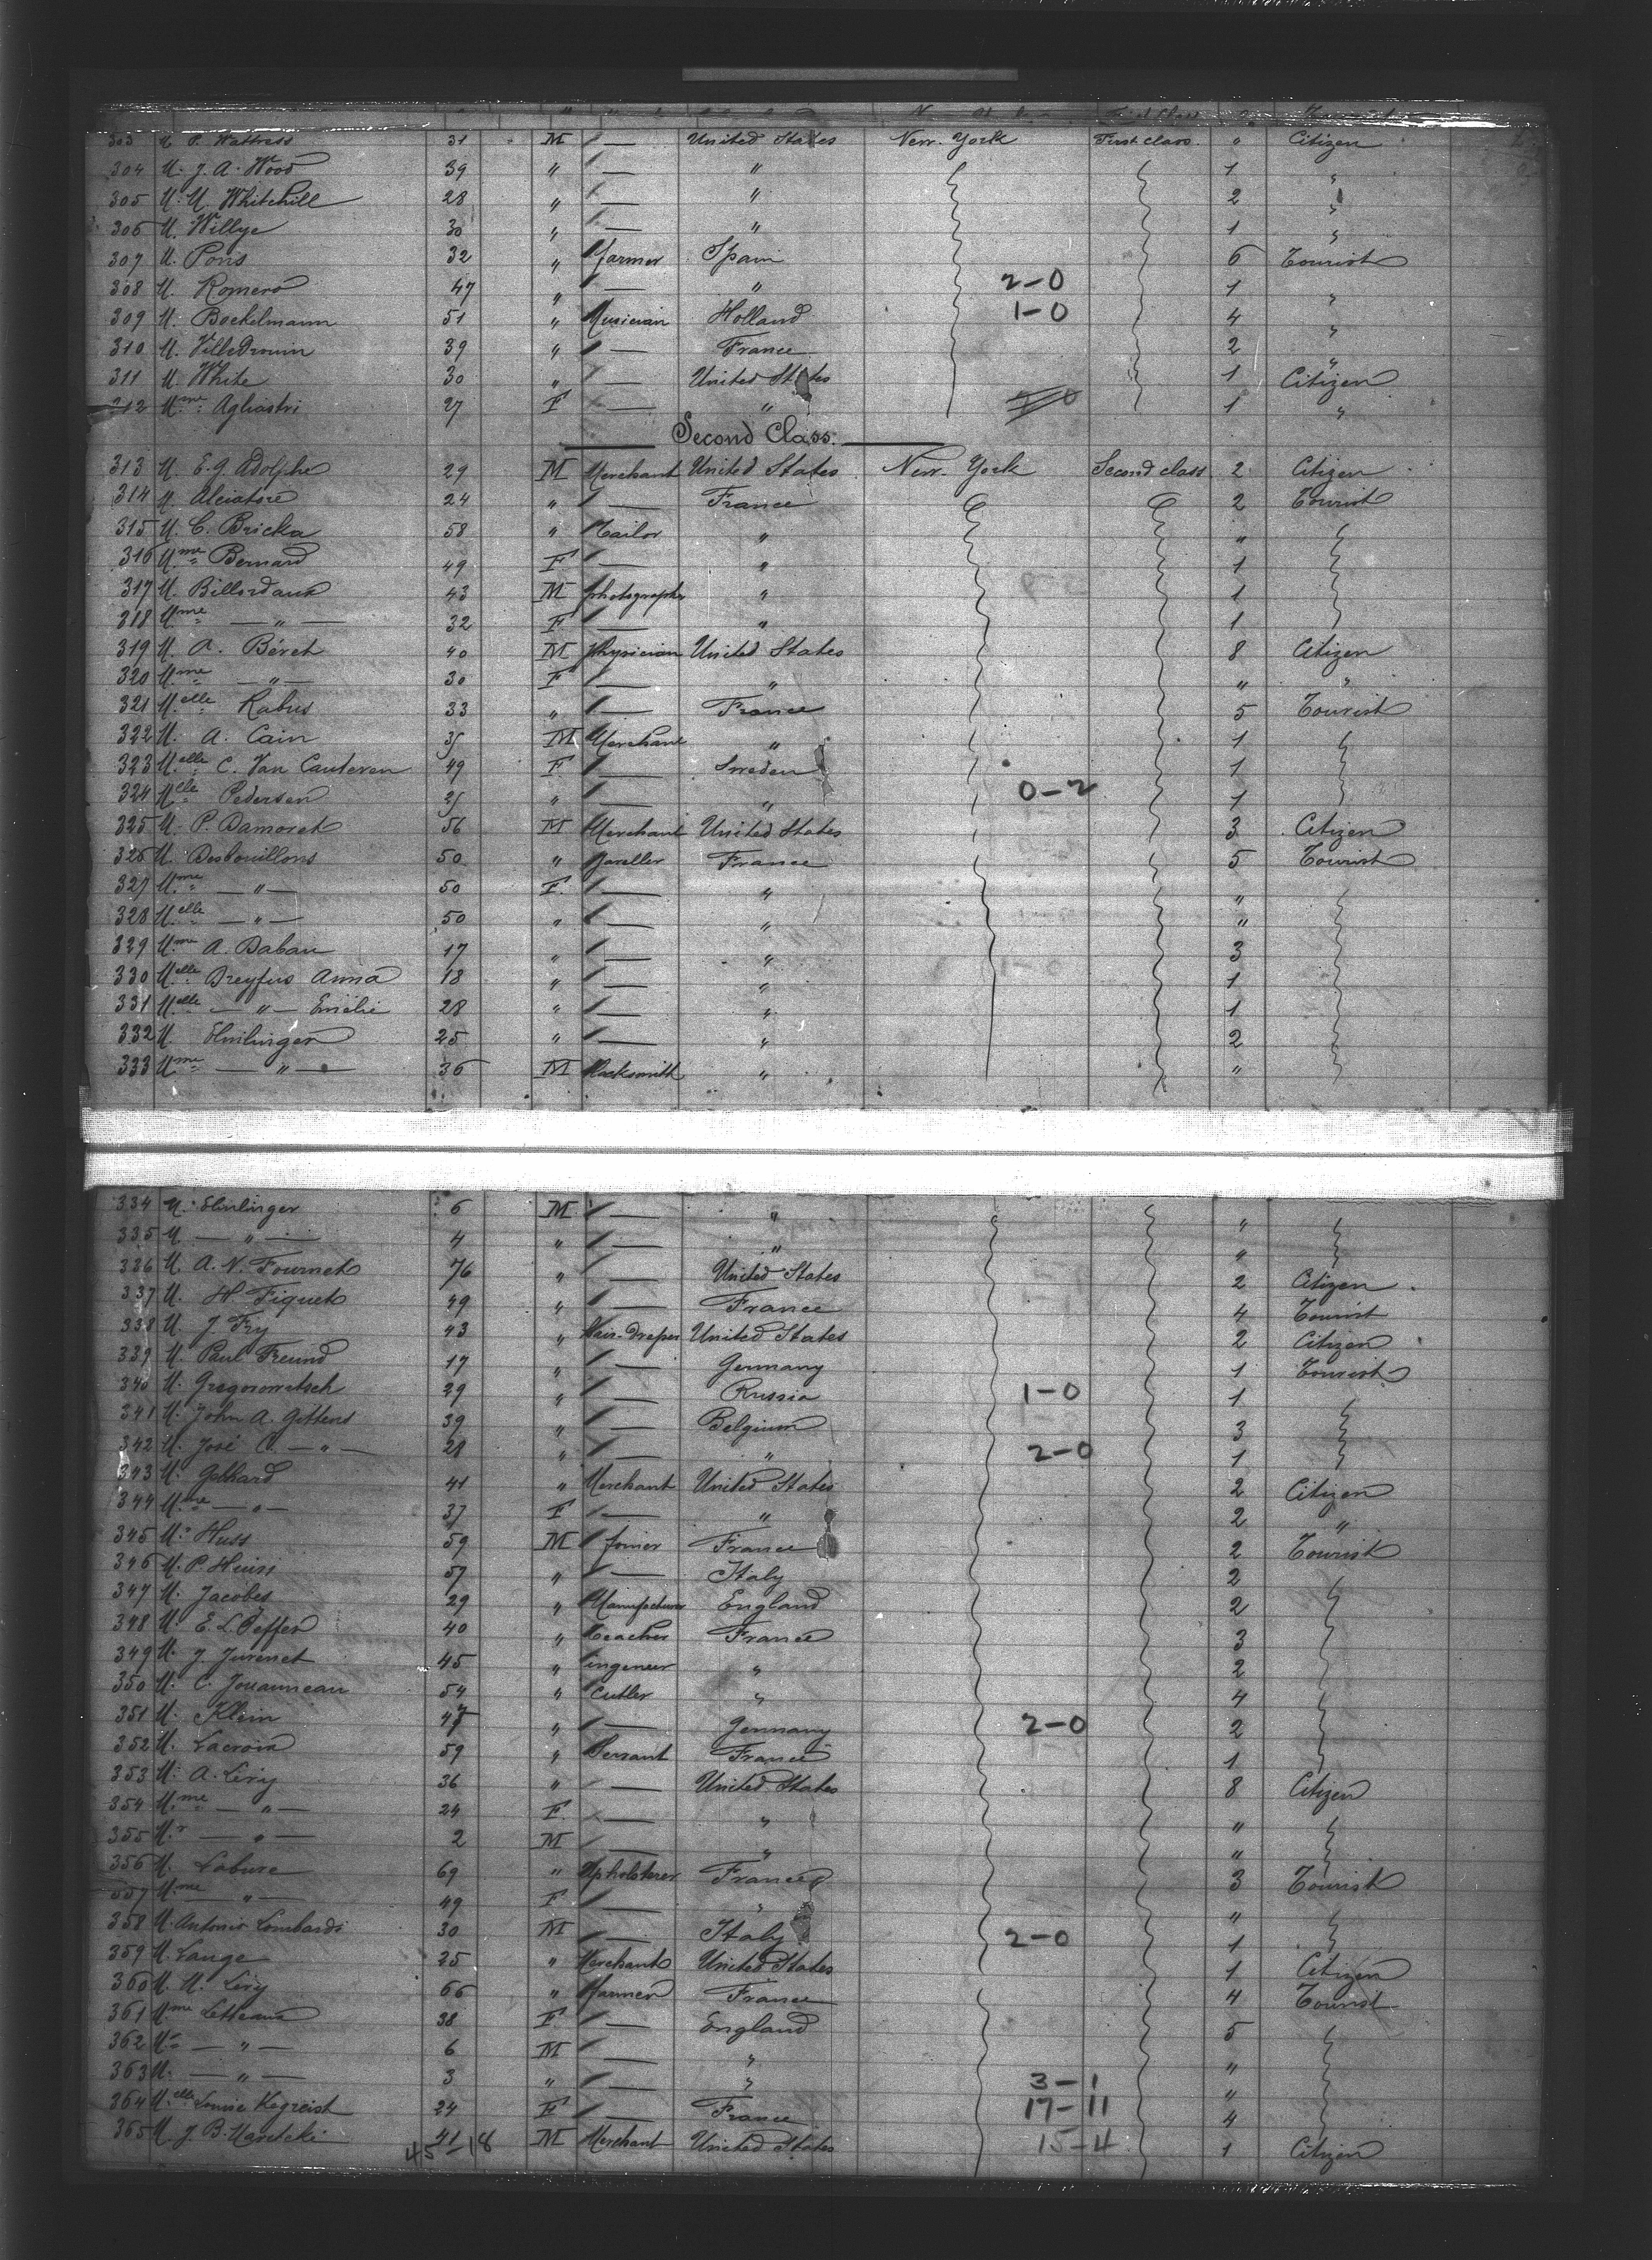 303 M P. Wattress 31 M — United States New-York First class " Citizen
304 M. J. A. Wood 39 " — " 1 "
305 M. M. Whitehill 28 " — " 2 "
306 M. Willye 30 " — " 1 "
307 M. Pons 32 " farmer Spain 6 Tourist
308 M. Romero 47 " — " 2-0 1 "
309 M. Bockelmann 51 " Musician Holland 1-0 4 "
310 M. Villedrouin 39 " — France 2 "
311 M. White 30 " — United States 1 Citizen
312 Mme Agliastri 27 F — " 1 "
Second Class.
313 M. E. g. Adolphe 29 M Merchant United States New-York Second class 2 Citizen
314 M. Alciatore 24 " — France 2 Tourist
315 M. C. Bricka 58 " Tailor " "
316 Mme Bernard 49 F — " 1
317 M. 43 M photographer " 1
318 Mme — " — 32 F — " 1
319 M. A. Béret 40 M physician United States 8 Citizen
320 Mme — " — 30 F — " " "
321 Melle Rabus 33 " — France 5 Tourist
322 M. A. Cain 35 M Merchant " 1
323 Melle C. Van Cauteren 49 F — Sweden 1
324 Melle Pedersen 25 " — " 0-2 1
325 M. P. Damoret 56 M Merchant United States 3 Citizen
326 M. Desbouillons 50 " Jaweller France 5 Tourist
327 Mme — " — 50 F — " "
328 Melle — " — 50 " — " "
329 Mme A. Daban 17 " — " 3
330 Melle Dreyfus Anna 18 " — " 1
331 Melle — " — Emélie 28 " — " 1
332 M. Elmlinger 25 " — " 2
333 Mme — " — 36 M Blacksmith " "
334 M. Elmlinger 6 M — " "
335 M. — " — 4 " — " "
336 M. A. N. Fournet 76 " — United States 2 Citizen
337 M. H Fiquet 49 " — France 4 Tourist
338 M. J Fry 43 " Hair-Dreper United States 2 Citizen
339 M. Paul Freund 17 " — Germany 1 Tourist
340 M. Gregorowitsch 29 " — Russia 1-0 1
341 M. John A. Gittens 39 " — Belgium 3
342 M. José C. — " — 28 " — " 2-0 1
343 M. Gebhard 41 " Merchant United States 2 Citizen
344 Mme — " — 37 F — " 2 "
345 M. Huss 59 M Joiner France 2 Tourist
346 M. P. 57 " — Italy 2
347 M. Jacobes 29 " Manufacturer England 2
348 M. E. L. Peffer 40 " Teacher France 3
349 M. J. Juvenet 45 " ingeneer " 2
350 M. C. Jouanneau 54 " Cutler " 4
351 M. Klein 47 " — Germany 2-0 2
352 M. Lacroix 59 " Servant France 1
353 M. A. Lévy 36 " — United States 8 Citizen
354 Mme — " — 24 F — " "
355 Mr — " — 2 M — " "
356 M. Labure 69 " Upholsterer France 3 Tourist
357 Mme — " — 49 F — " "
358 M. Antonio Lombardi 30 M — Italy 2-0 1
359 M. Lange 25 " Merchant United States 1 Citizen
360 M. M. Lévy 66 " farmer France 4 Tourist
361 Mme 38 F — England 5
362 M. — " — 6 M — " "
363 M. — " — 3 " — " 3-1 "
364 Melle Louise Kegreist 24 F — France 17-11 4
365 M J. B. Maretchi 41 M Merchant United States 15-4 1 Citizen
45-18